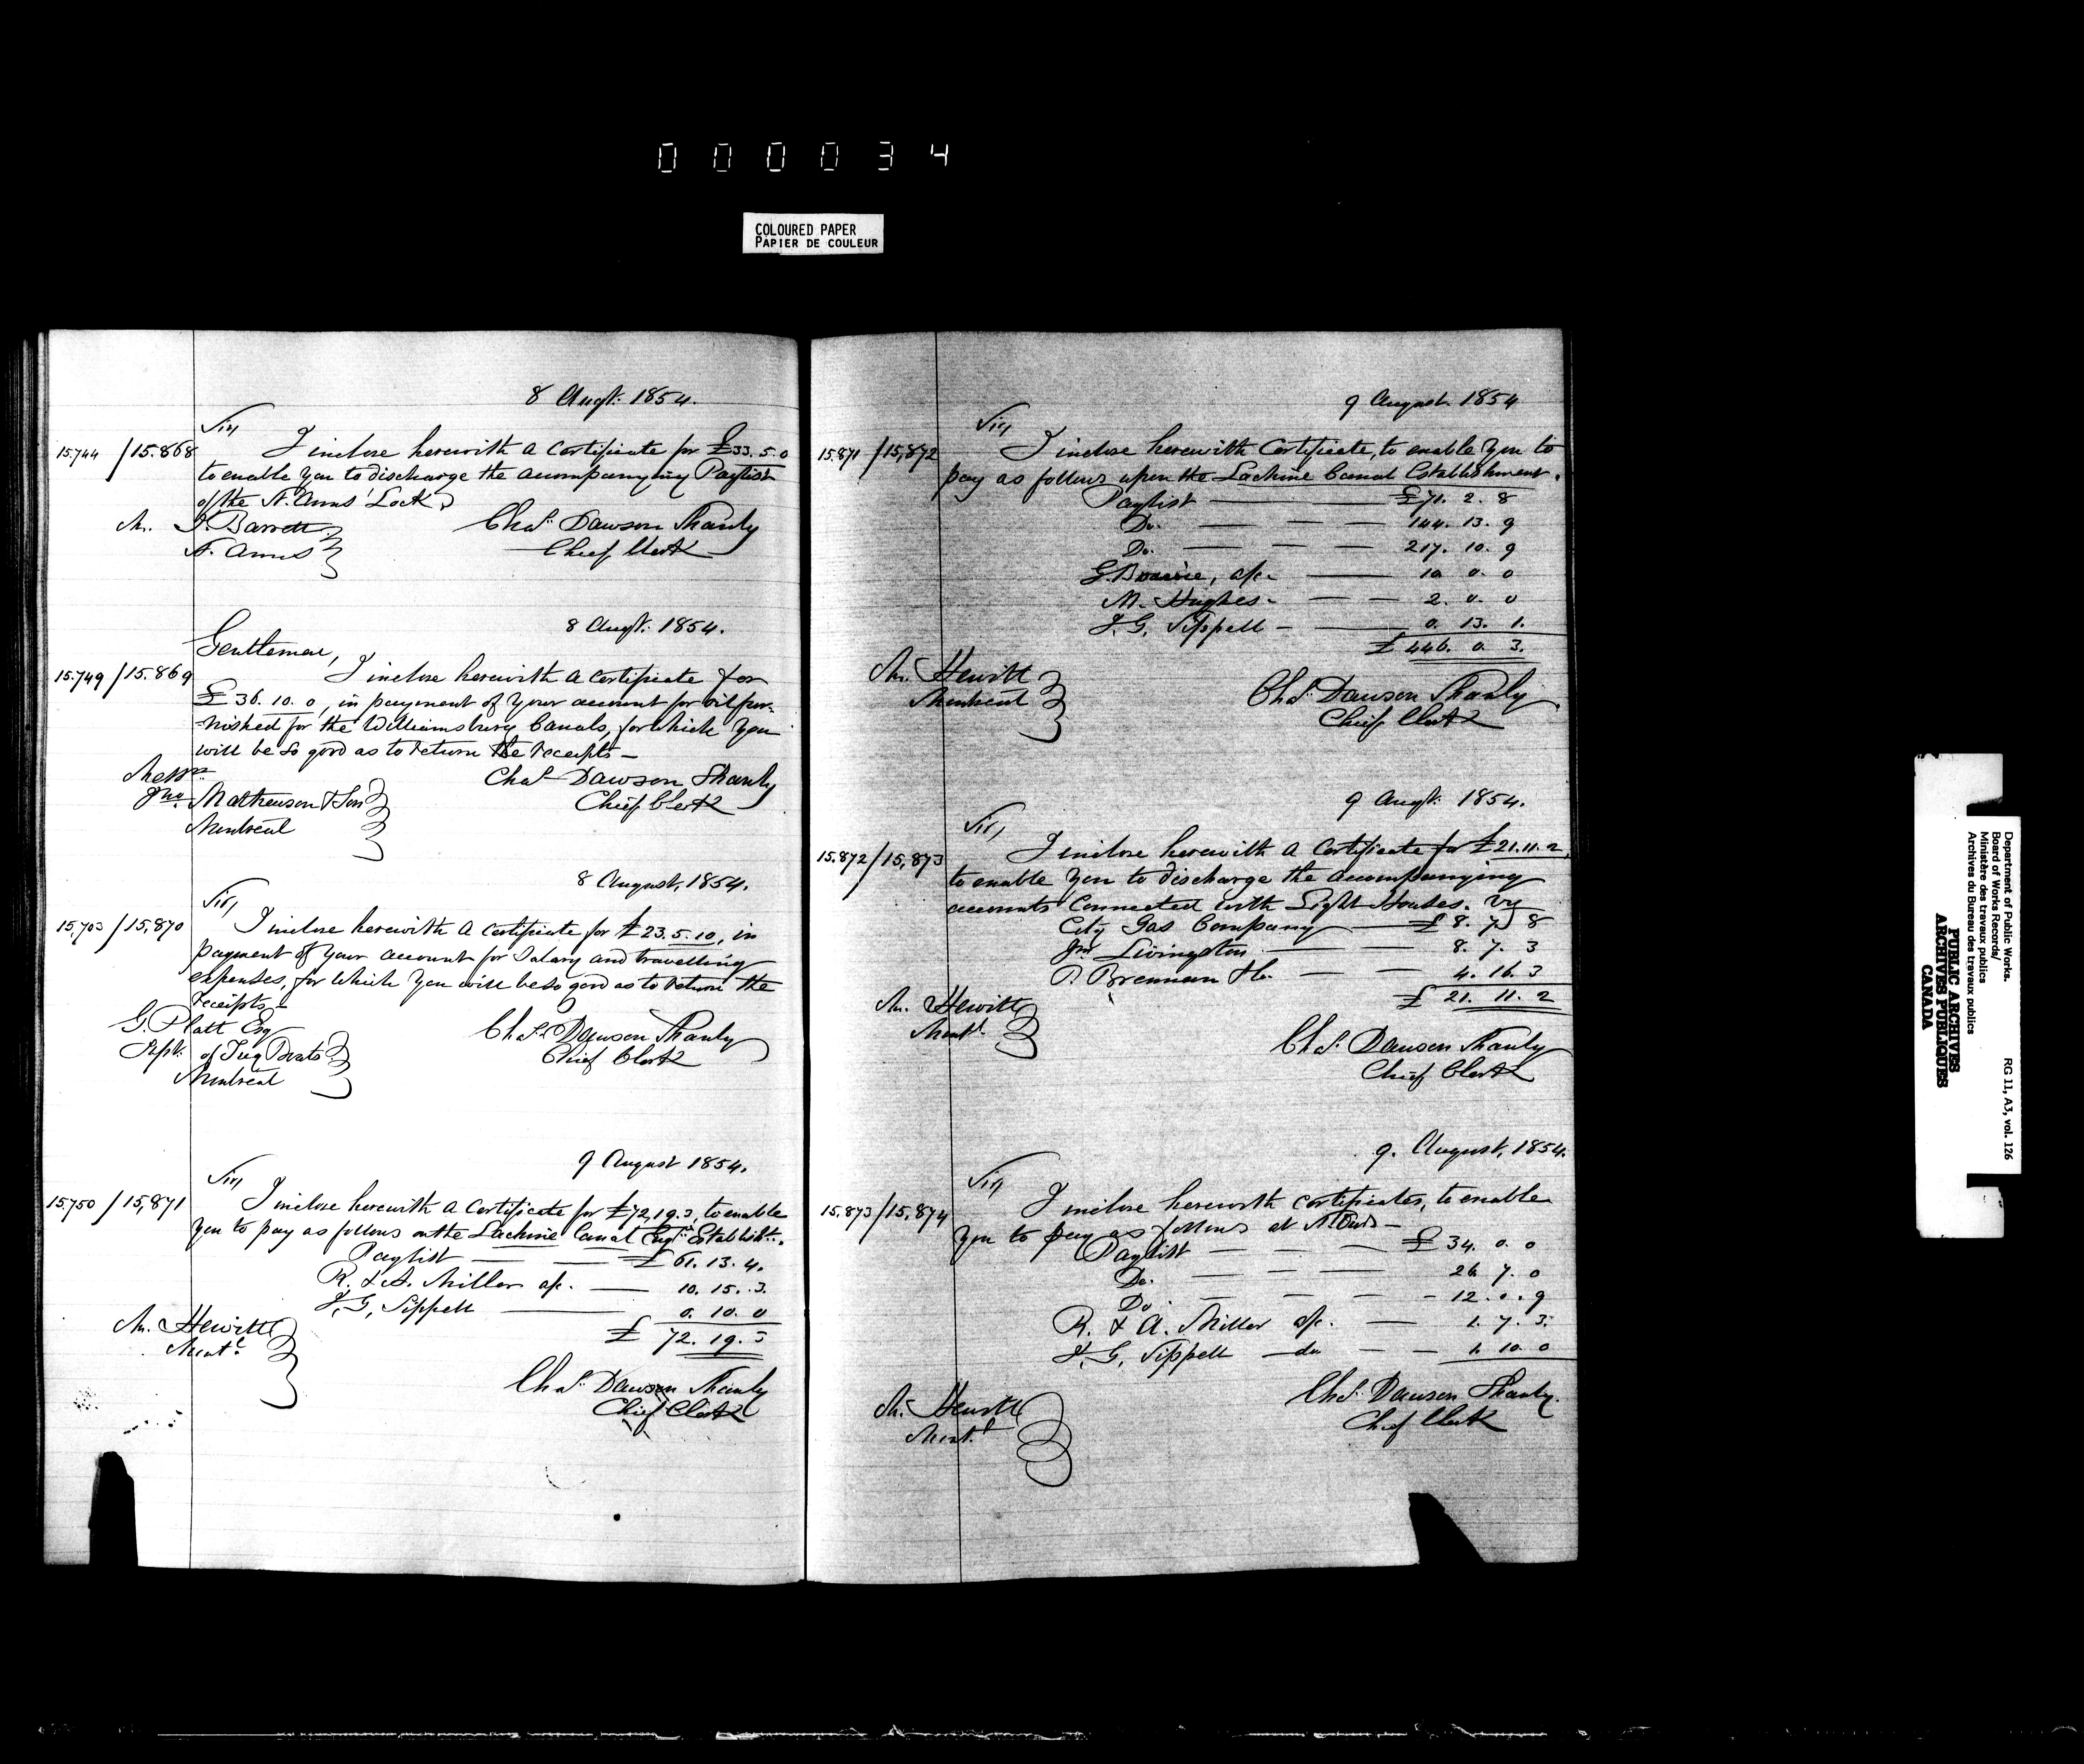 000034
COLOURED PAPER
PAPIER DE COULEUR
8 Augt. 1854.
Sir,
15.744 / 15.868
I inclose herewith a Certificate for £33.5.0
to enable you to discharge the accompanying Paylist
of the St. Anns' Lock
Mr. J. Barrett
St. Anns
Chas. Dawson Shanly
Chief Clerk
8 Augt. 1854.
Gentlemen,
15.749 / 15.869
I inclose herewith a Certificate for
£36.10.0, in payment of your account for oil fur-
-nished for the Williamsburg Canals, for which you
will be so good as to return the receipts —
Messrs
Jno. Mathewson & Son
Montreal
Chas. Dawson Shanly
Chief Clerk
8 August, 1854.
Sir,
15,703 / 15,870
I inclose herewith a Certificate for £23.5.10, in
payment of your account for Salary and travelling
expenses, for which you will be so good as to return the
receipts —
G. Platt Esq
Supt. of Tug Boats
Montreal
Chas. Dawson Shanly
Chief Clerk
9 August 1854.
Sir,
15.750 / 15,871
I inclose herewith a Certificate for £72,19.3, to enable
you to pay as follows on the Lachine Canal Engrs Establisht.
Paylist — £61.13.4.
R. & A. Miller a/c. — 10.15.3.
J. G. Sippell — 0.10.0
£72.19.3
Mr. Hewitt
Montl.
Chas. Dawson Shanly
Chief Clerk
9 August. 1854
Sir,
15.871 / 15,872
I inclose herewith Certificate, to enable you to
pay as follows upon the Lachine Canal Establishment.
Paylist — £71.2.8
Do. — 144.13.9
Do. — 217.10.9
G. a/c. — 10.0.0
M. Hughes — 2.0.0
J. G. Sippell — 0.13.1.
£446.0.3.
Mr. Hewitt
Montreal
Chas. Dawson Shanly
Chief Clerk
9 Augt. 1854.
Sir,
15.872 / 15,873
I inclose herewith a Certificate for £21.11.2,
to enable you to discharge the accompanying
accounts connected with Light Houses. vz
City Gas Company — £8.7.8
Jno Livingston — 8.7.3
P. Brennan & Co. — 4.16.3
£21.11.2
Mr. Hewitt
Montl.
Chas. Dawson Shanly
Chief Clerk
9. August, 1854.
Sir,
15.873 / 15,874
I inclose herewith Certificates, to enable
you to pay as follows at St Ours —
Paylist — £34.0.0
Do. — 26.7.0
Do. — 12.0.9
R. & A. Miller a/c. — 1.7.3.
J. G. Sippell — do — 1.10.0
Mr. Hewitt
Montl.
Chas. Dawson Shanly.
Chief Clerk
Department of Public Works.
Board of Works Records/
Ministère des travaux publics
Archives du Bureau des travaux publics
RG 11, A3, vol. 126
PUBLIC ARCHIVES
ARCHIVES PUBLIQUES
CANADA